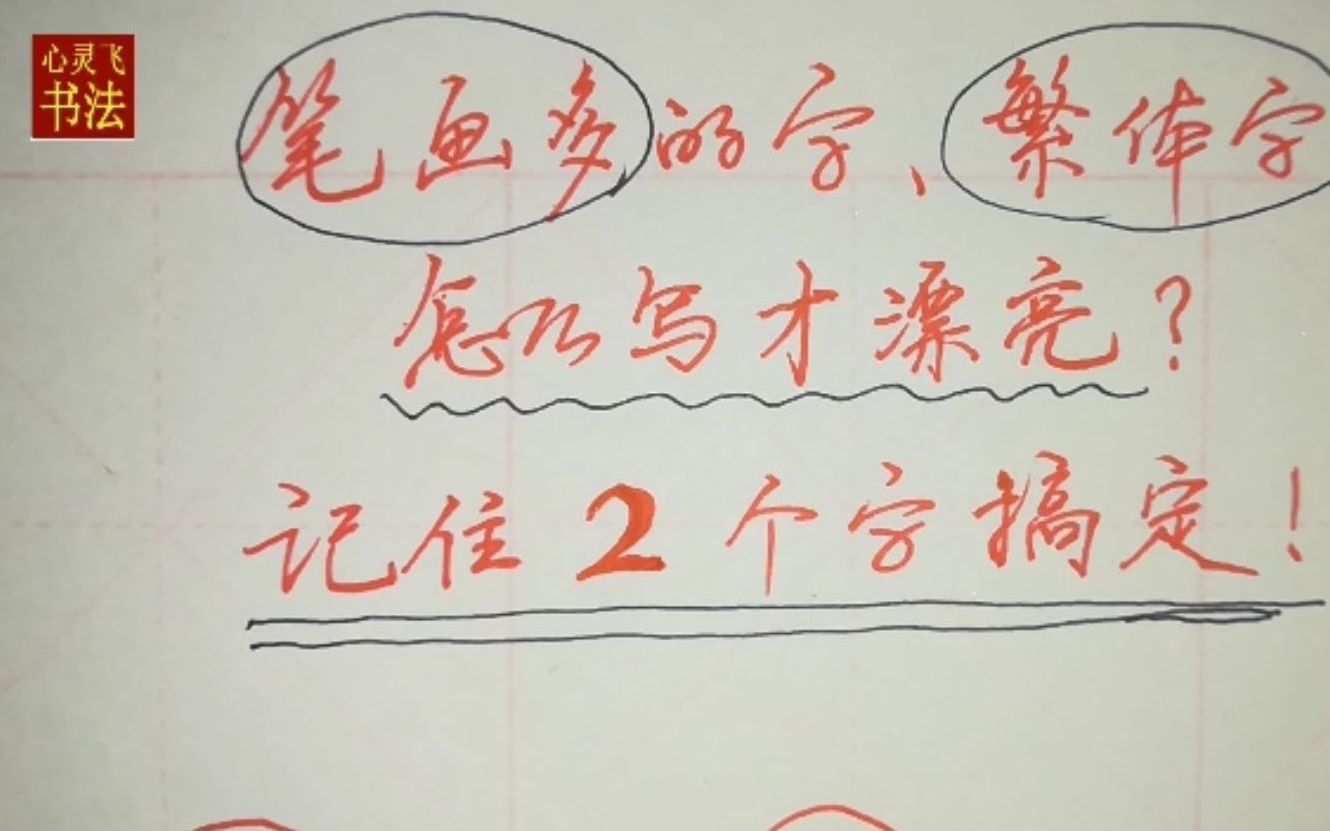 心灵飞
书法
笔画多的字、繁体字
怎么写才漂亮?
记住2个字搞定!